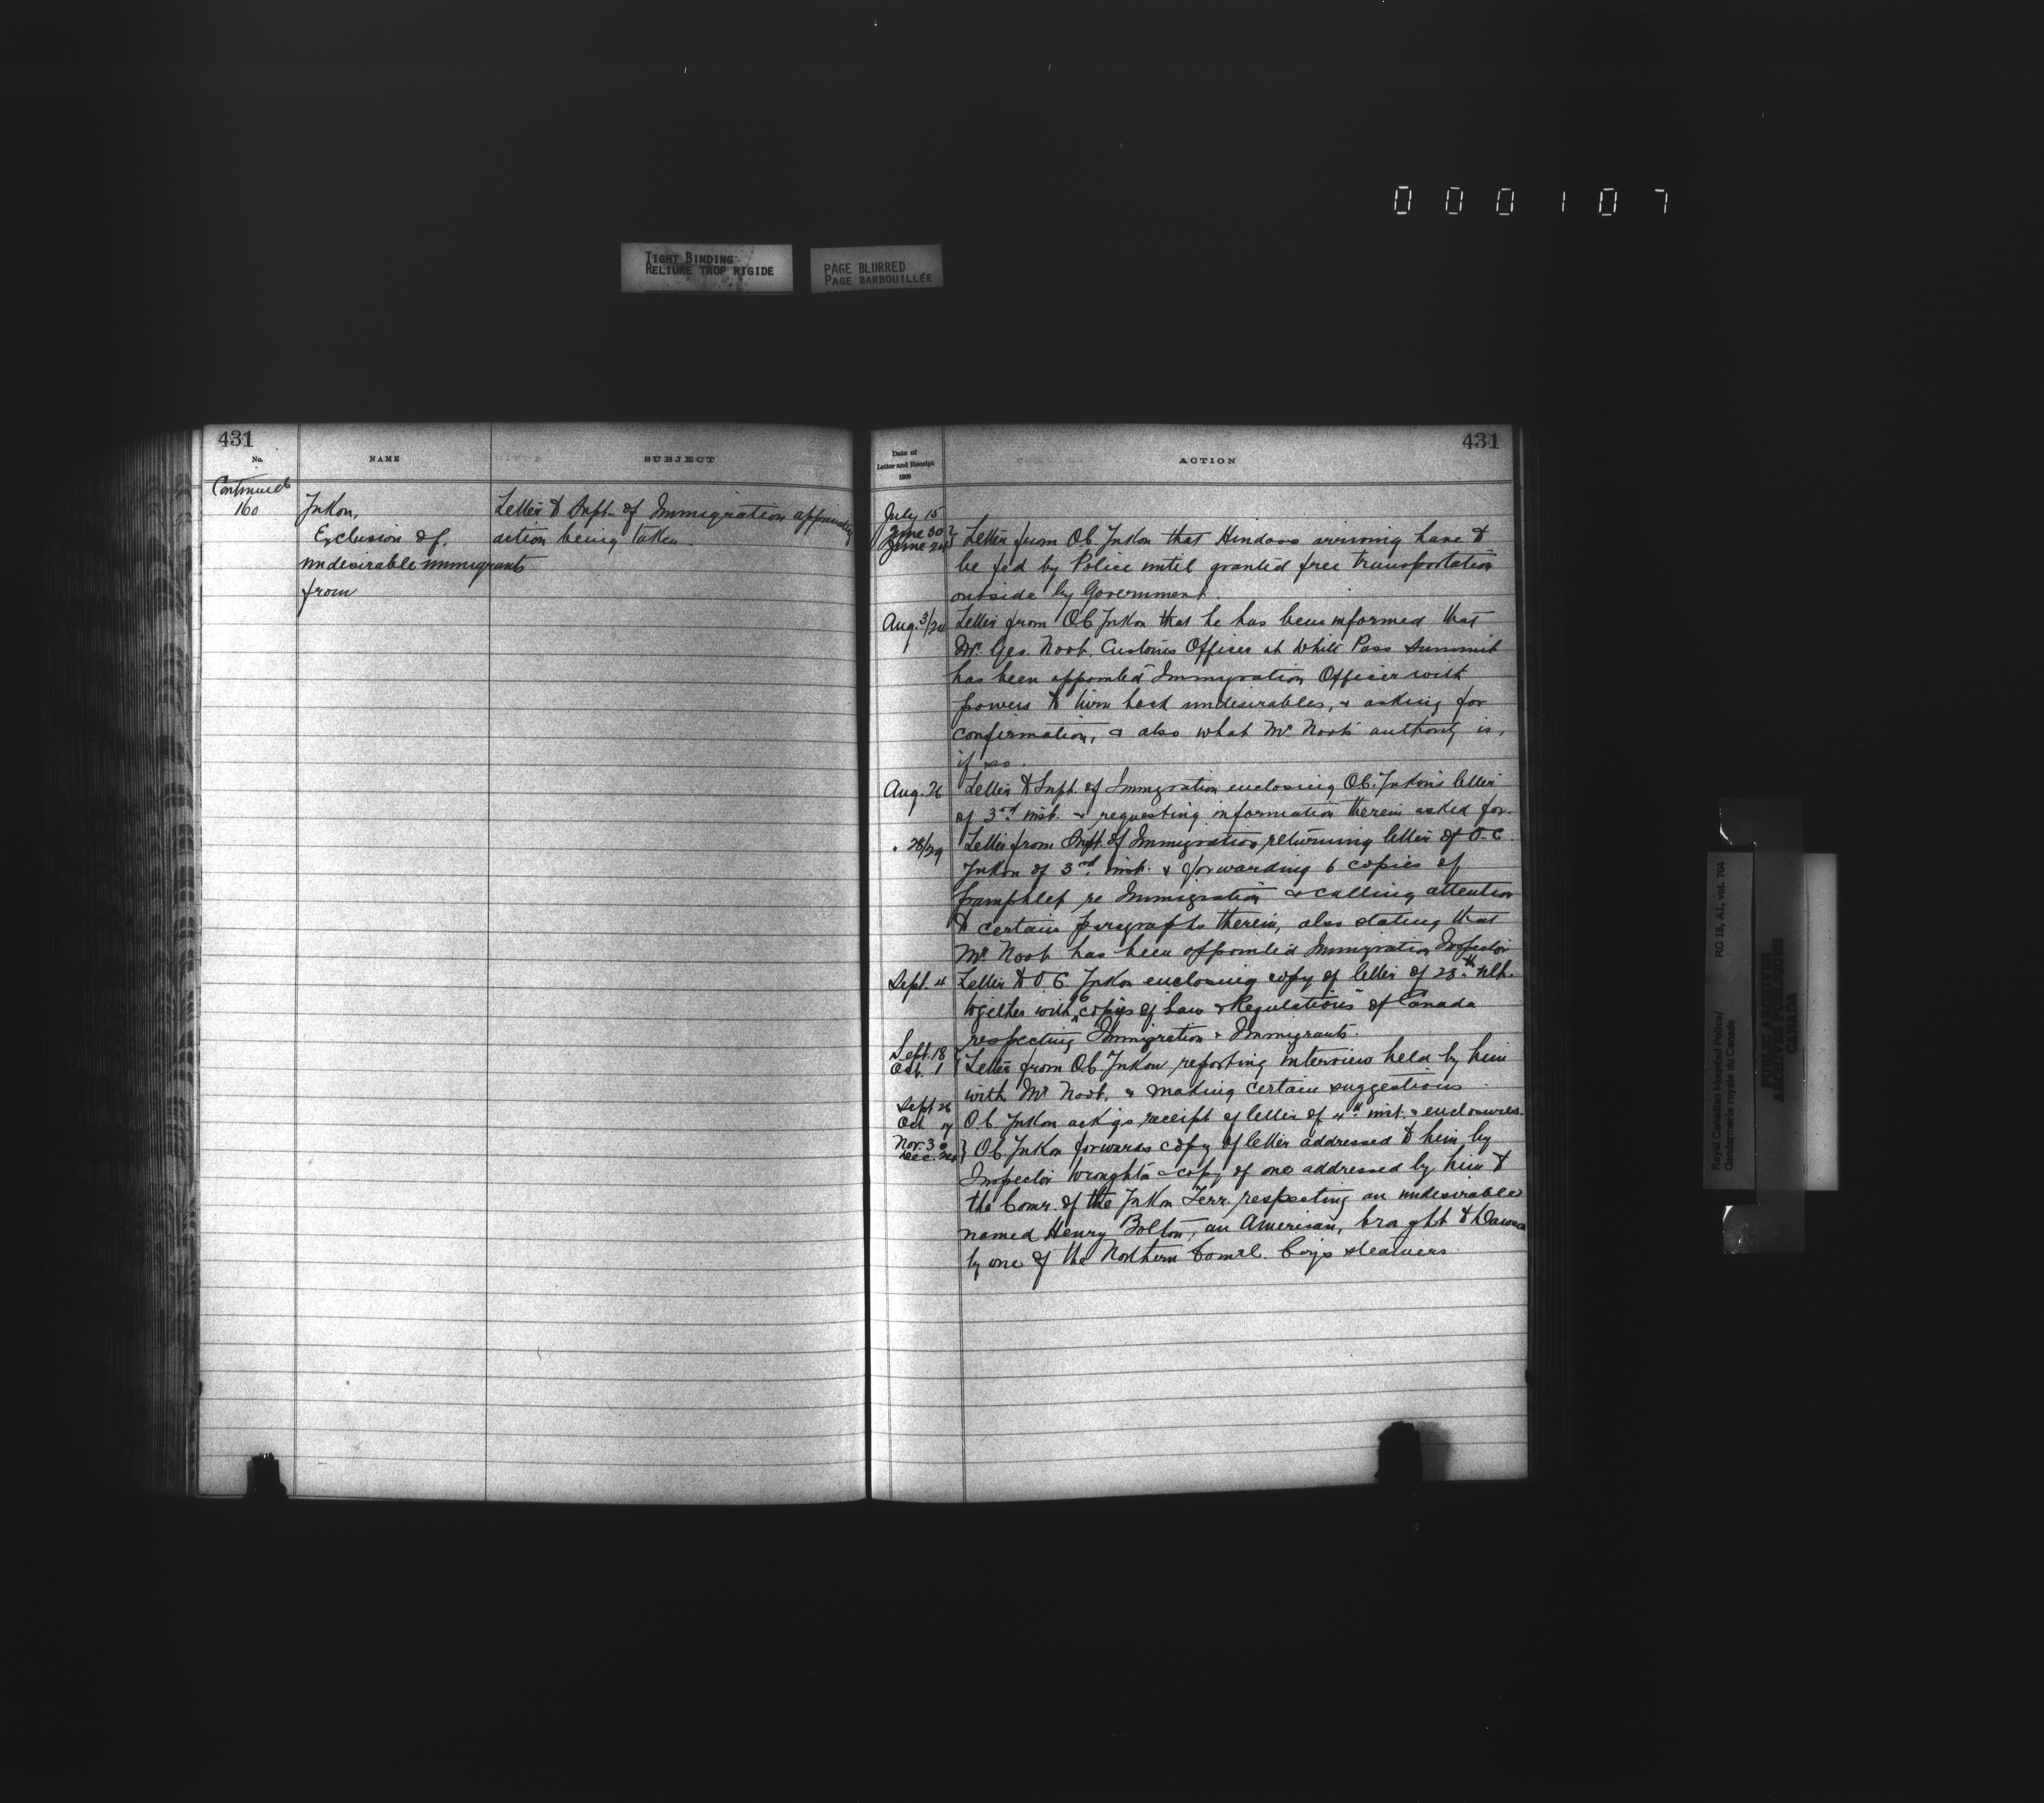 000107
TIGHT BINDING
RELIURE TROP RIGIDE
PAGE BLURRED
PAGE BARBOUILLÉE
431
No.
NAME
SUBJECT
Continued
160
Yukon,
Exclusion of
undesirable immigrants
from
Letter to Supt. of Immigration approving
action being taken.
431
Date of
Letter and Receipt
1908
ACTION
July 15
June 30
June 24
Letter from O.C. Yukon that Hindoos arriving have to
be fed by Police until granted free transportation
outside by Government.
Aug. 3/24 Letter from O.C. Yukon that he has been informed that
Mr. Geo. Noot, Customs Officer at White Pass Summit
has been appointed Immigration Officer with
powers to turn back undesirables, & asking for
confirmation, & also what Mr. Noot's authority is,
if so.
Aug. 26 Letter to Supt. of Immigration enclosing O.C. Yukon's letter
of 3rd inst. & requesting information therein asked for.
" 28/29 Letter from Supt. of Immigration returning letter of O.C.
Yukon of 3rd inst. & forwarding 6 copies of
pamphlet re Immigration & calling attention
to certain paragraphs therein, also stating that
Mr. Noot has been appointed Immigration Inspector
Sept. 4 Letter to O.C. Yukon enclosing copy of letter of 28th ult.
together with 6 copies of "Law & Regulations" of Canada
respecting Immigration & Immigrants.
Sept. 18
Oct. 1
Letter from O.C. Yukon reporting interview held by him
with Mr. Noot, & making certain suggestions
Sept 26
Oct.
O.C. Yukon ack'gs receipt of letter of 4th inst. & enclosures.
Nov. 30
Dec.
O.C. Yukon forwards copy of letter addressed to him by
Inspector Wroughton & copy of one addressed by him to
the Comr. of the Yukon Terr. respecting an undesirable
named Henry Bolton, an American, brought to Dawson
by one of the Northern Comml. Coy's steamers.
Royal Canadian Mounted Police/
Gendarmerie royale du Canada
RG 18, A1, vol. 704
PUBLIC ARCHIVES
ARCHIVES PUBLIQUES
CANADA